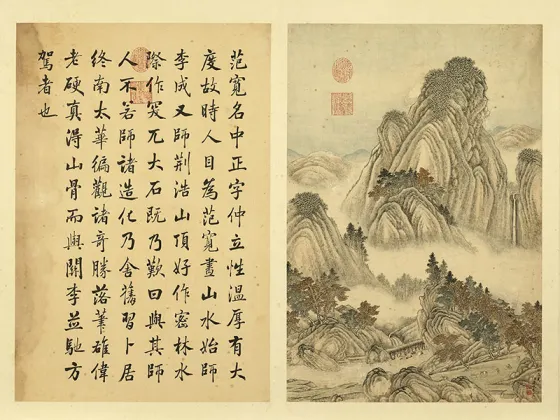 范寬名中正字仲立性溫厚有大
度故時人目為范寬畫山水始師
李成又師荊浩山頂好作密林水
際作突兀大石既乃歎曰與其師
人不若師諸造化乃舍舊習卜居
終南太華徧觀諸奇勝落筆雄偉
老硬真得山骨而與關李並馳方
駕者也